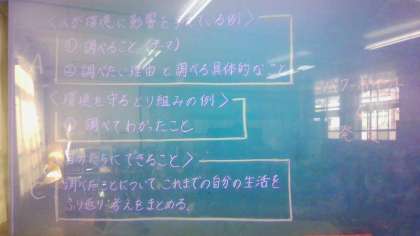 A
〈人が環境に影響を与えている例〉
①調べること(テーマ)
②調べたい理由と調べる具体的なこと
〈環境を守るとり組みの例〉
調べてわかったこと
〈自分たちにできること〉
C
調べたことについて、これまでの自分の生活を
ふり返り、考えをまとめる。